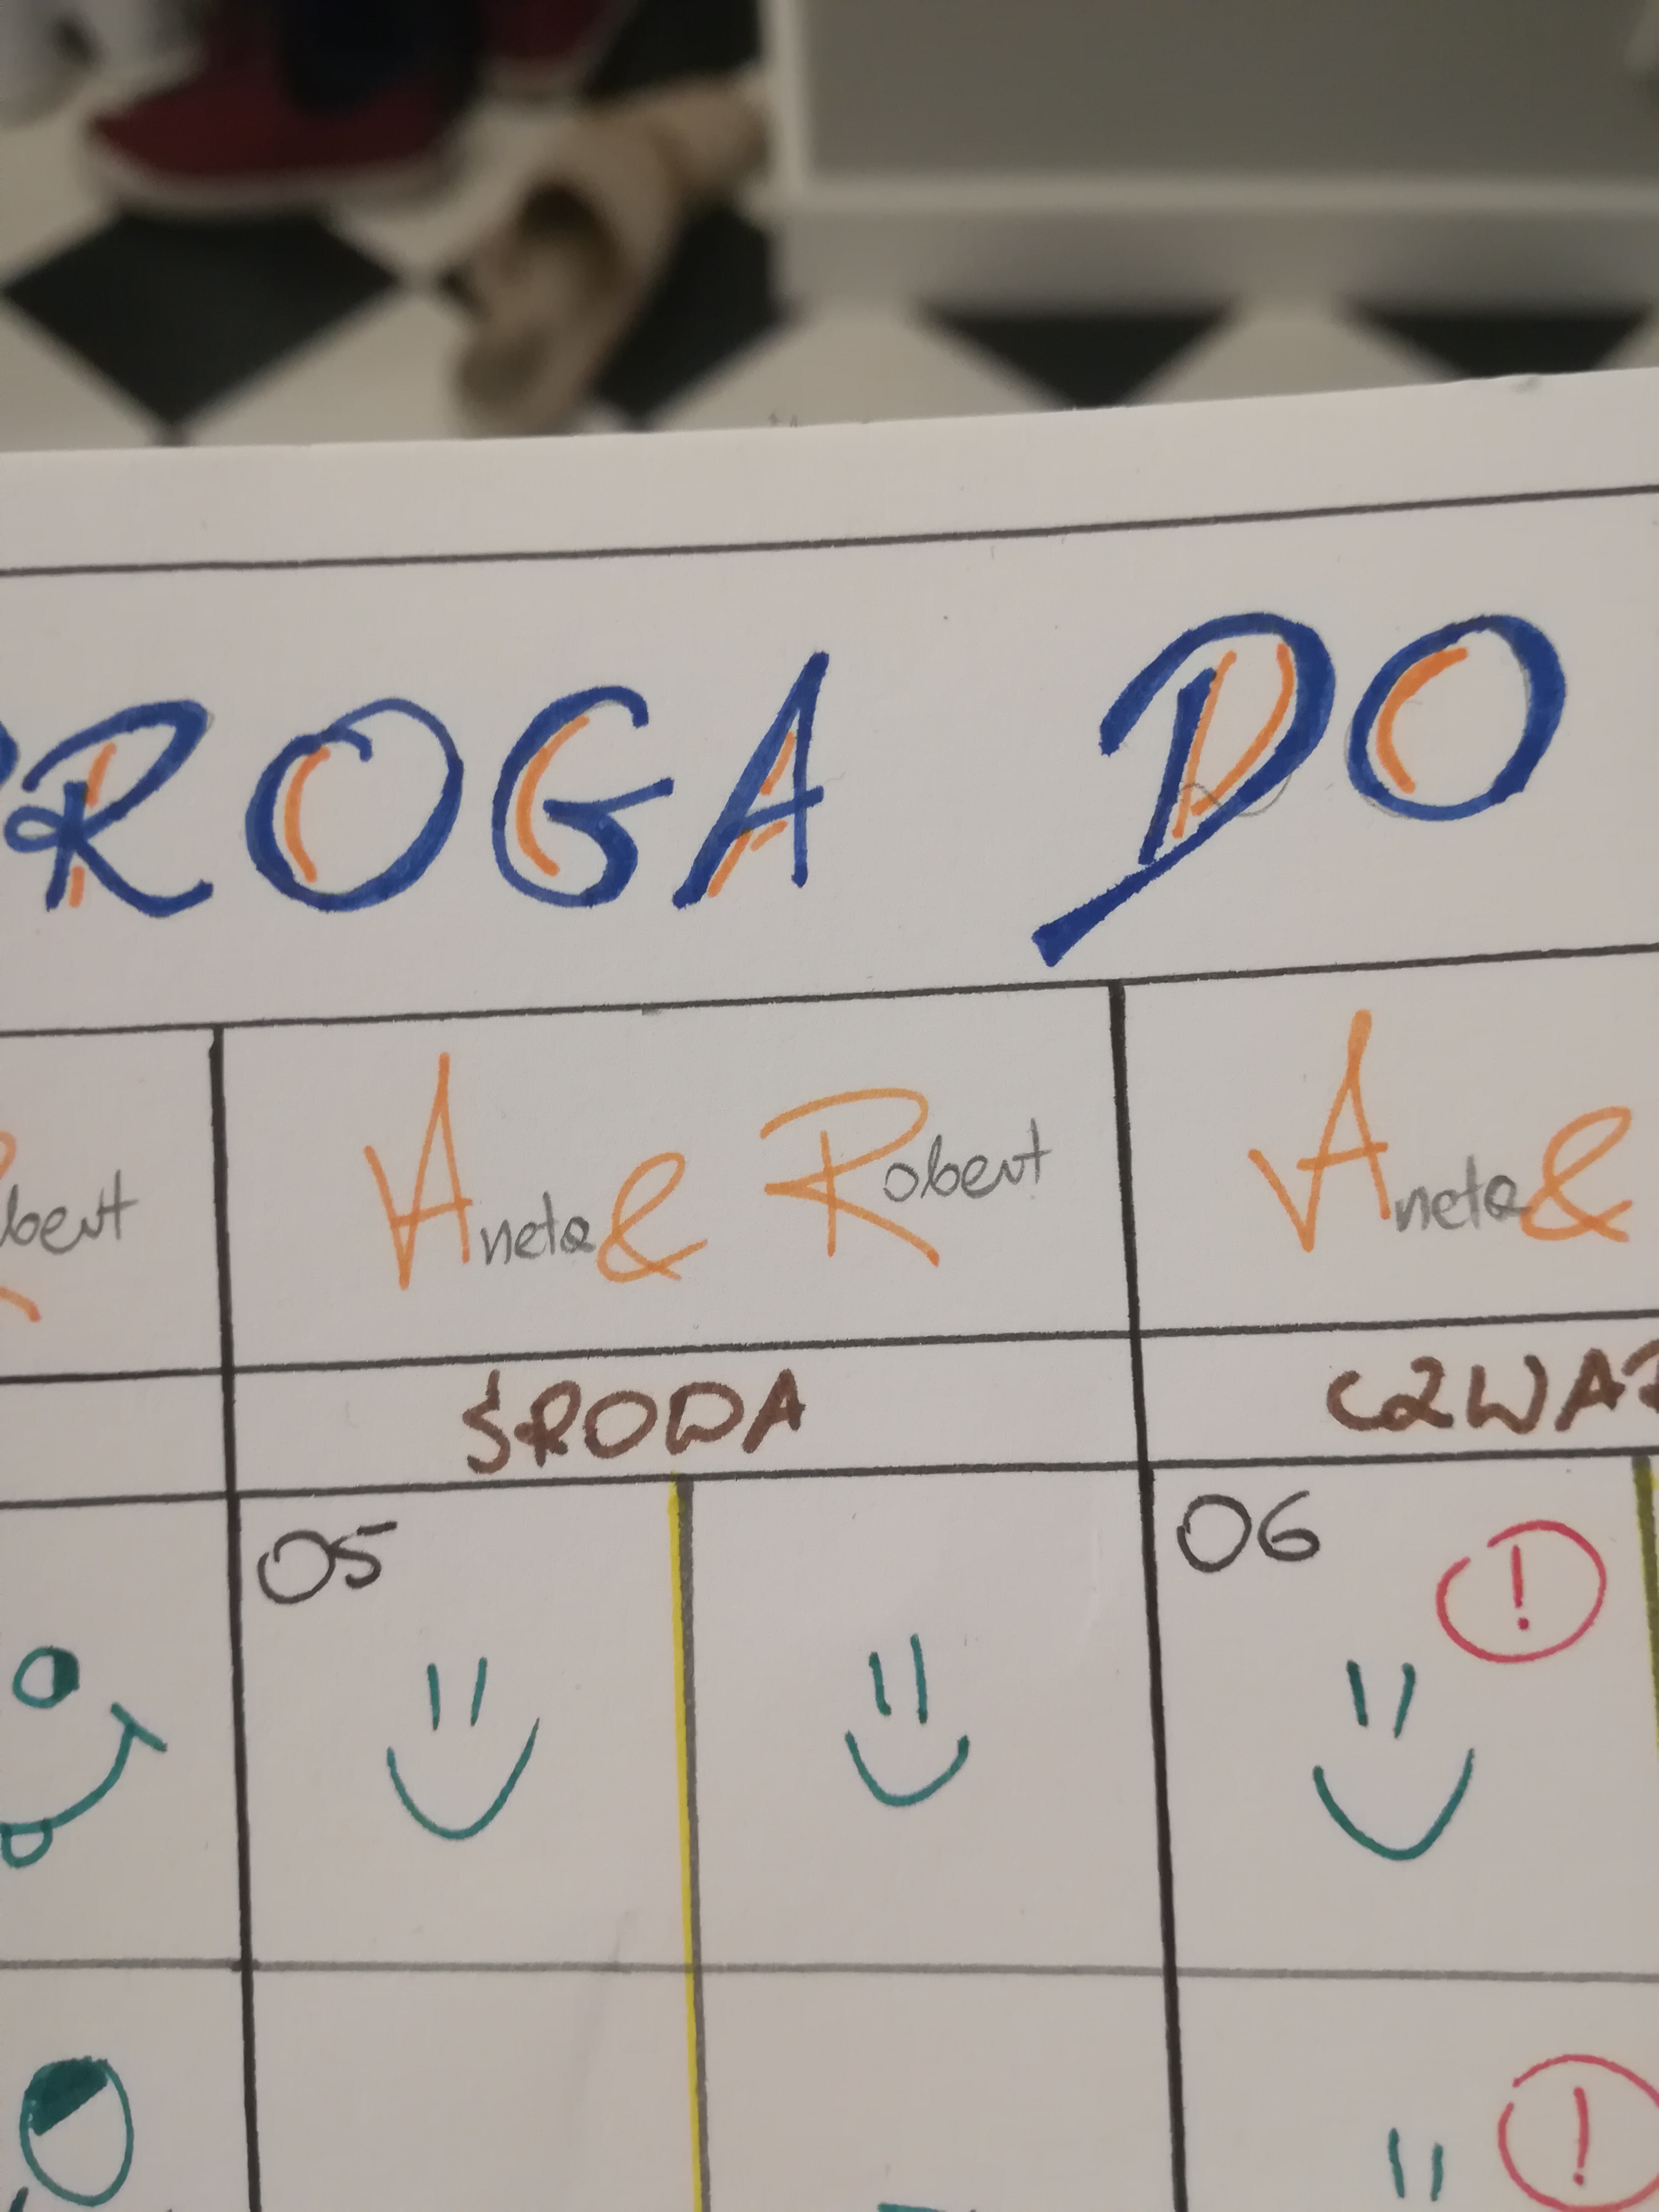 ROGA DO
bert Aneta & Robert Aneta &
ŚRODA CZWAR
05 06 !
!